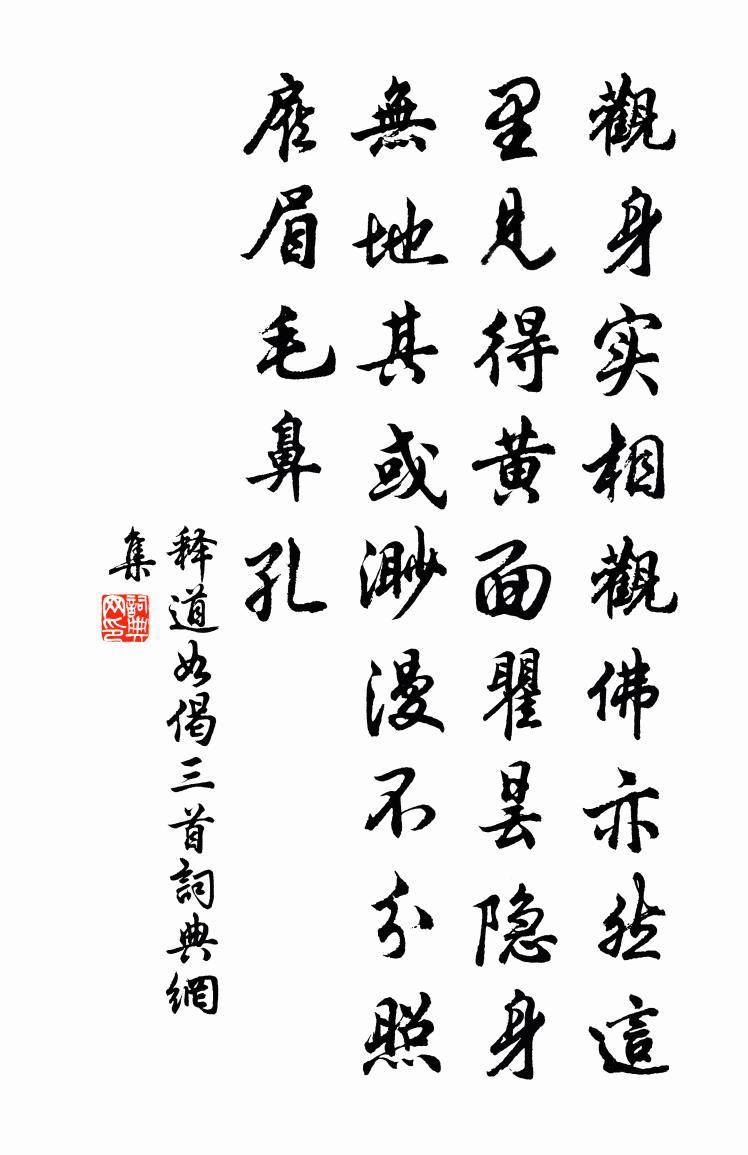 觀身实相觀佛亦然這
里見得黄面瞿曇隐身
無地其或渺漫不分照
麻眉毛鼻孔
释道如偈三首詞典網
集
詞典网印